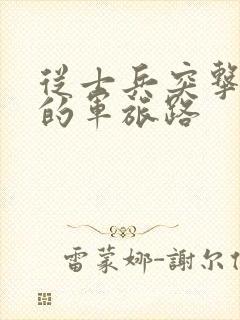 從士兵突擊
的軍旅路
雷蒙娜-謝尔